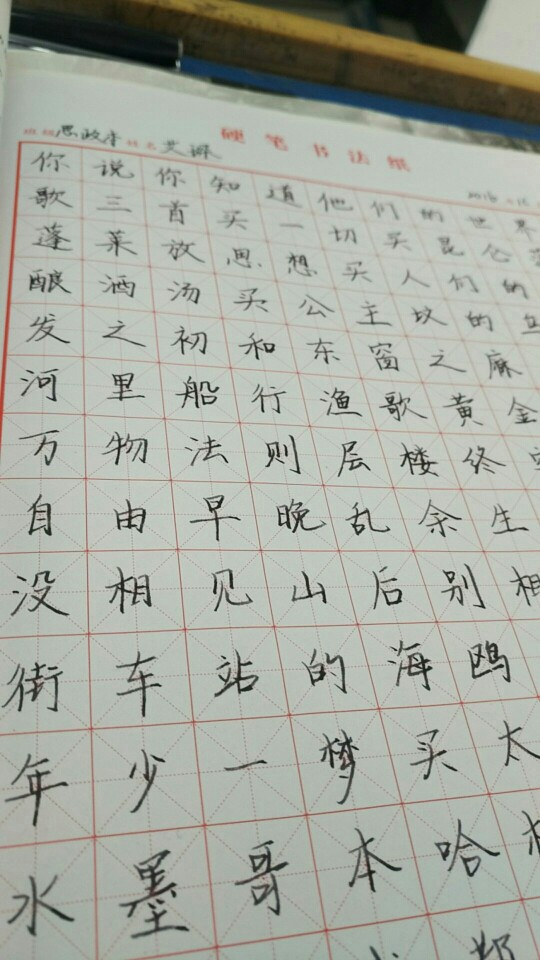 硬笔书法纸
班级思政 姓名
你说你知道他们的世界
歌三首买一切买昆仑
蓬莱放思想买人们的
酿酒汤买公主坟的
发之初和东窗之麻
河里船行渔歌黄金
万物法则层楼终
自由早晚乱余生
没相见山后别相
街车站的海鸥
年少一梦买太
水墨哥本哈